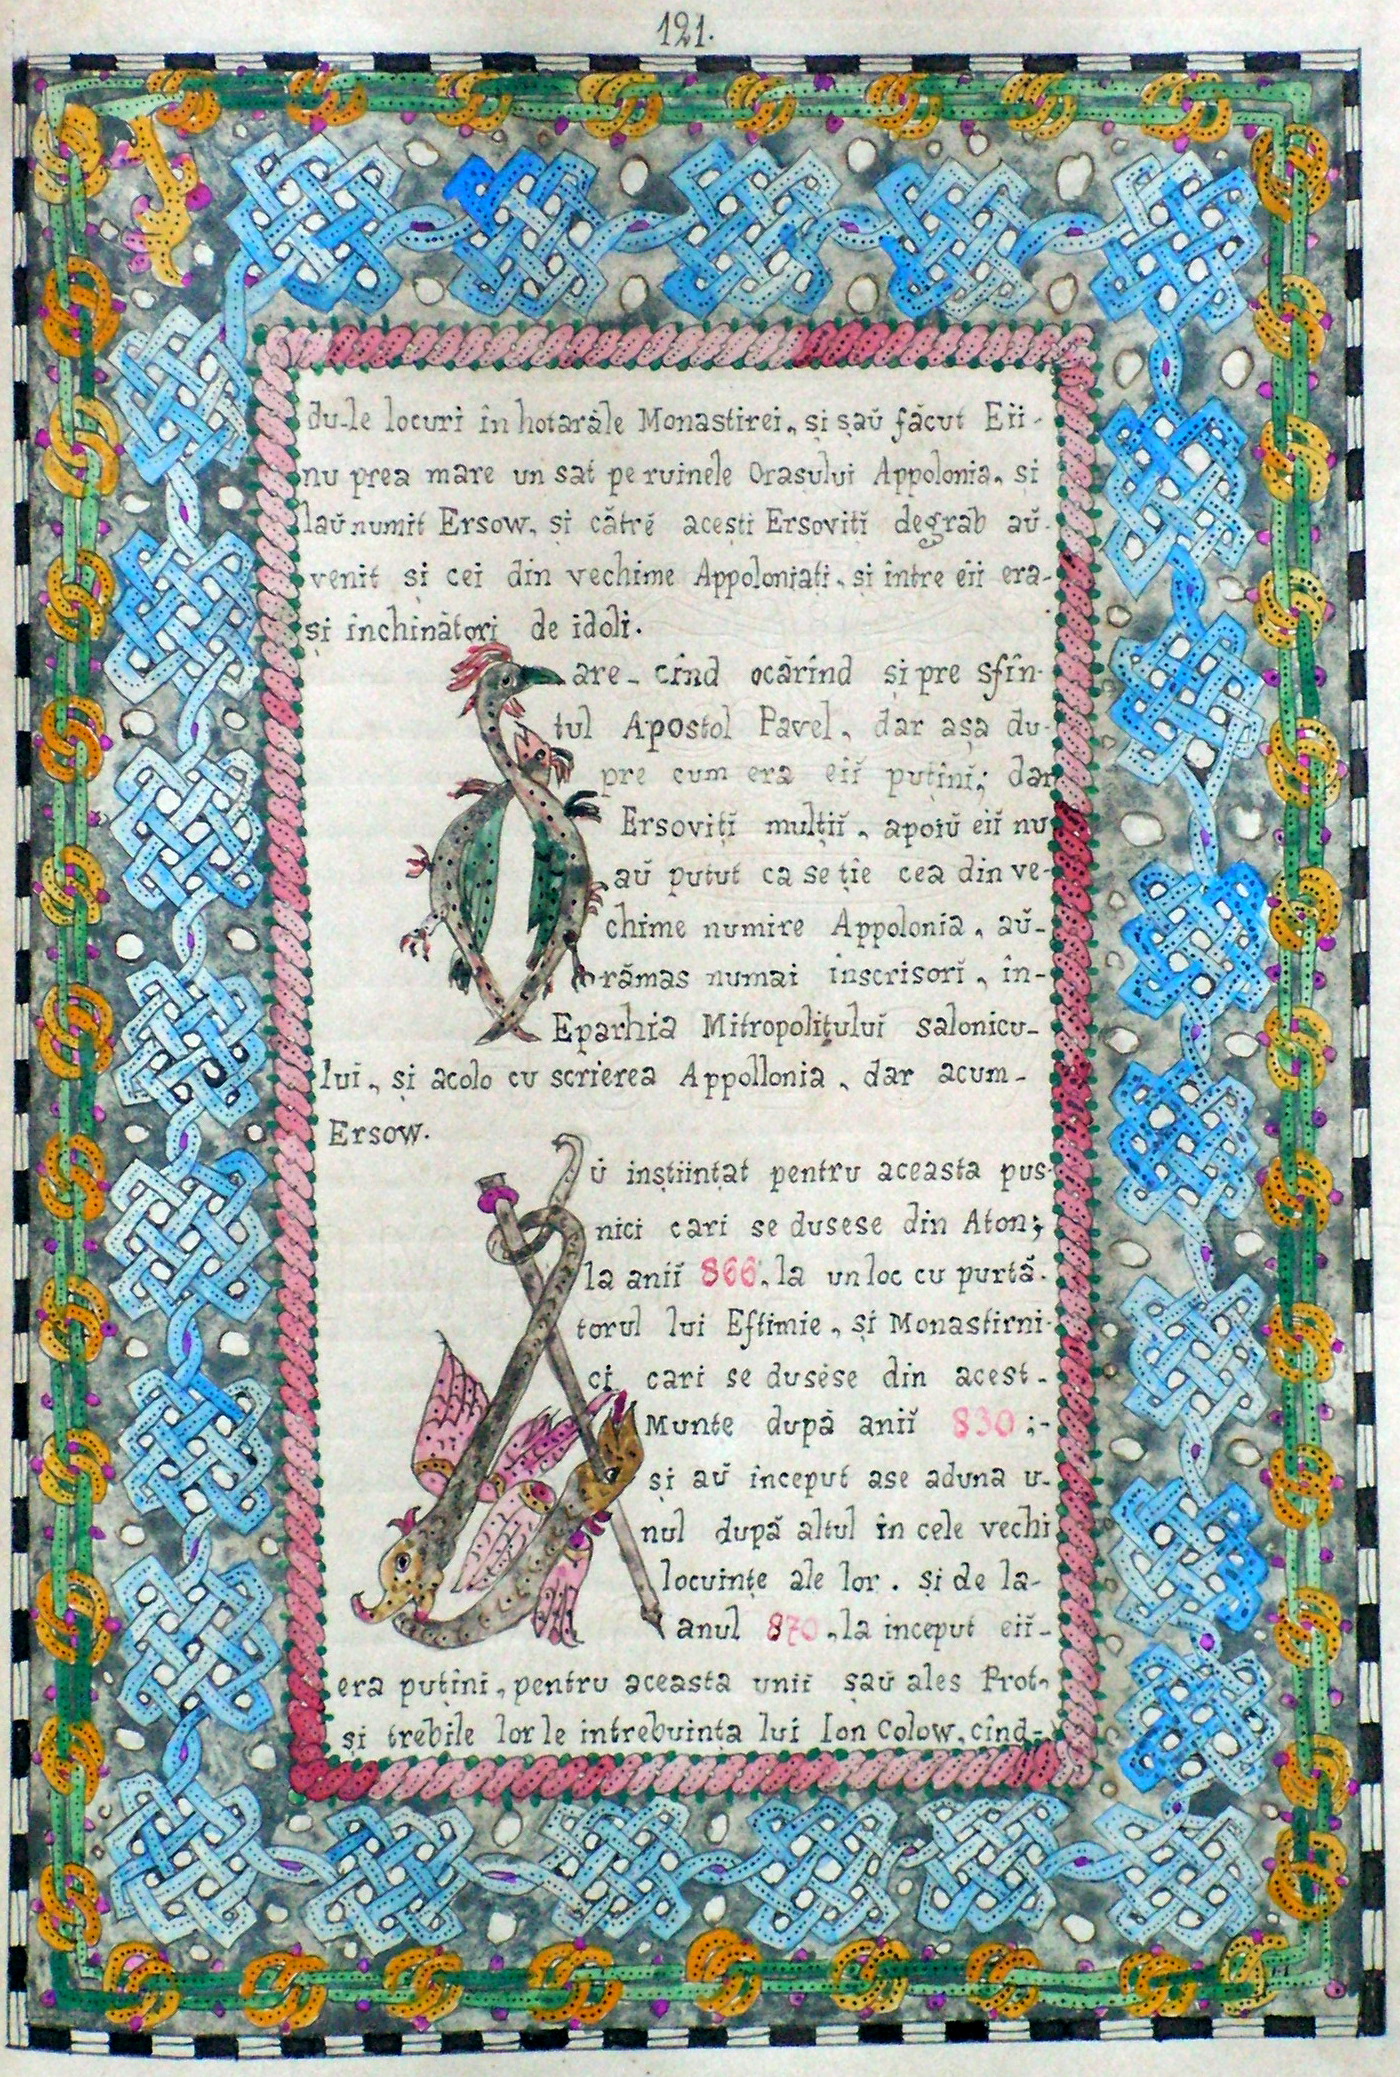 121.
du-le locuri în hotarăle Monastirei, și șaŭ făcut Eii-
nu prea mare un sat pe ruinele Orasului Appolonia, și
laŭ numit Ersow, și cătrĕ acești Ersovițĭ degrab aŭ-
venit și cei din vechime Appoloniați, și între eiĭ era-
și închinători de idoli.
are- cînd ocărînd și pre sfîn-
tul Apostol Pavel, dar așa du-
pre cum era eiĭ puținĭ; dar
Ersovițĭ mulțiĭ, apoiŭ eiĭ nu
aŭ putut ca se ție cea din ve-
chime numire Appolonia, aŭ-
rămas numai inscrisorĭ, în-
Eparhia Mitropolițuluĭ salonicu-
lui, și acolo cu scrierea Appollonia, dar acum-
Ersow.
Aŭ inștiințat pentru aceasta pus-
nici cari se dusese din Aton;
la aniĭ 866, la un loc cu purtă-
torul lui Eftimie, și Monastirni-
ci cari se dusese din acest-
Munte după aniĭ 830;-
și aŭ început ase aduna u-
nul după altul în cele vechi
locuințe ale lor. și de la-
anul 870, la inceput eiĭ-
era puținĭ, pentru aceasta uniĭ șaŭ ales Prot,
și trebile lor le intrebuința lui Ion Colow, cînd-